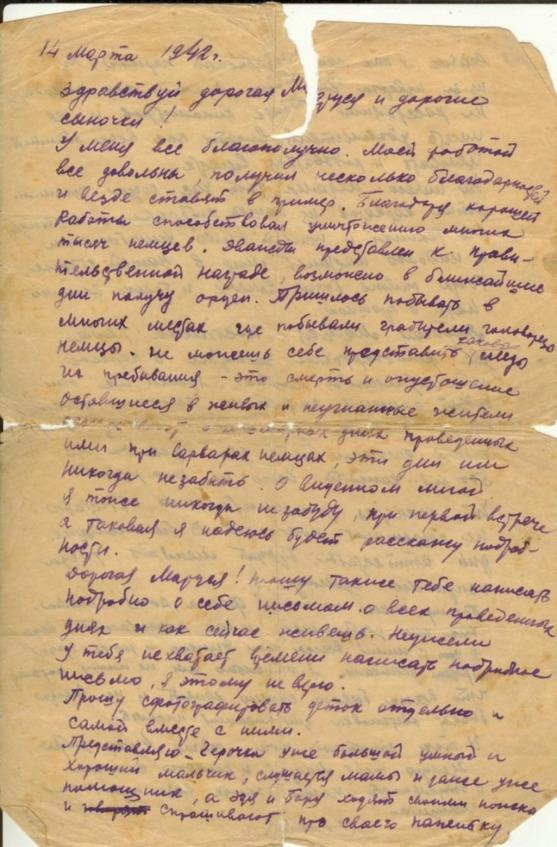 14 Марта 1942 г.
Здравствуй дорогая Маруся и дорогие
сыночки!
У меня все благополучно. Моей работой
все довольны, получил несколько благодарностей
и везде ставят в пример. Благодаря хорошей
работы способствовал уничтожению многих
тысяч немцев. Дважды представлен к прави-
тельственной награде, возможно в ближайшие
дни получу орден. Пришлось побывать в
многих местах где побывали грабители головорезы
немцы. Не можешь себе представить какова следы
их пребывания - это смерть и опустошение
оставшиеся в живых и неугнанные жители
днях проведенных
ими при варварах немцах, эти дни им
никогда незабыть. О виденном мной
я тоже никогда незабуду при первой встрече
а таковая я надеюсь будет расскажу подроб-
ности.
Дорогая Маруся! Прошу также тебе написать
подробно о себе письмом о всех проведенных
днях и как сейчас живешь. Неужели
у тебя нехватает времени написать подробное
письмо, я этому не верю.
Прошу сфотографировать деток отдельно и
самой вместе с ними.
Представляю - Герочка уже большой умный и
хороший мальчик, слушается мамы и даже уже
помощник, а Эдя и Боря ходят своими
и спрашивают про своего папеньку